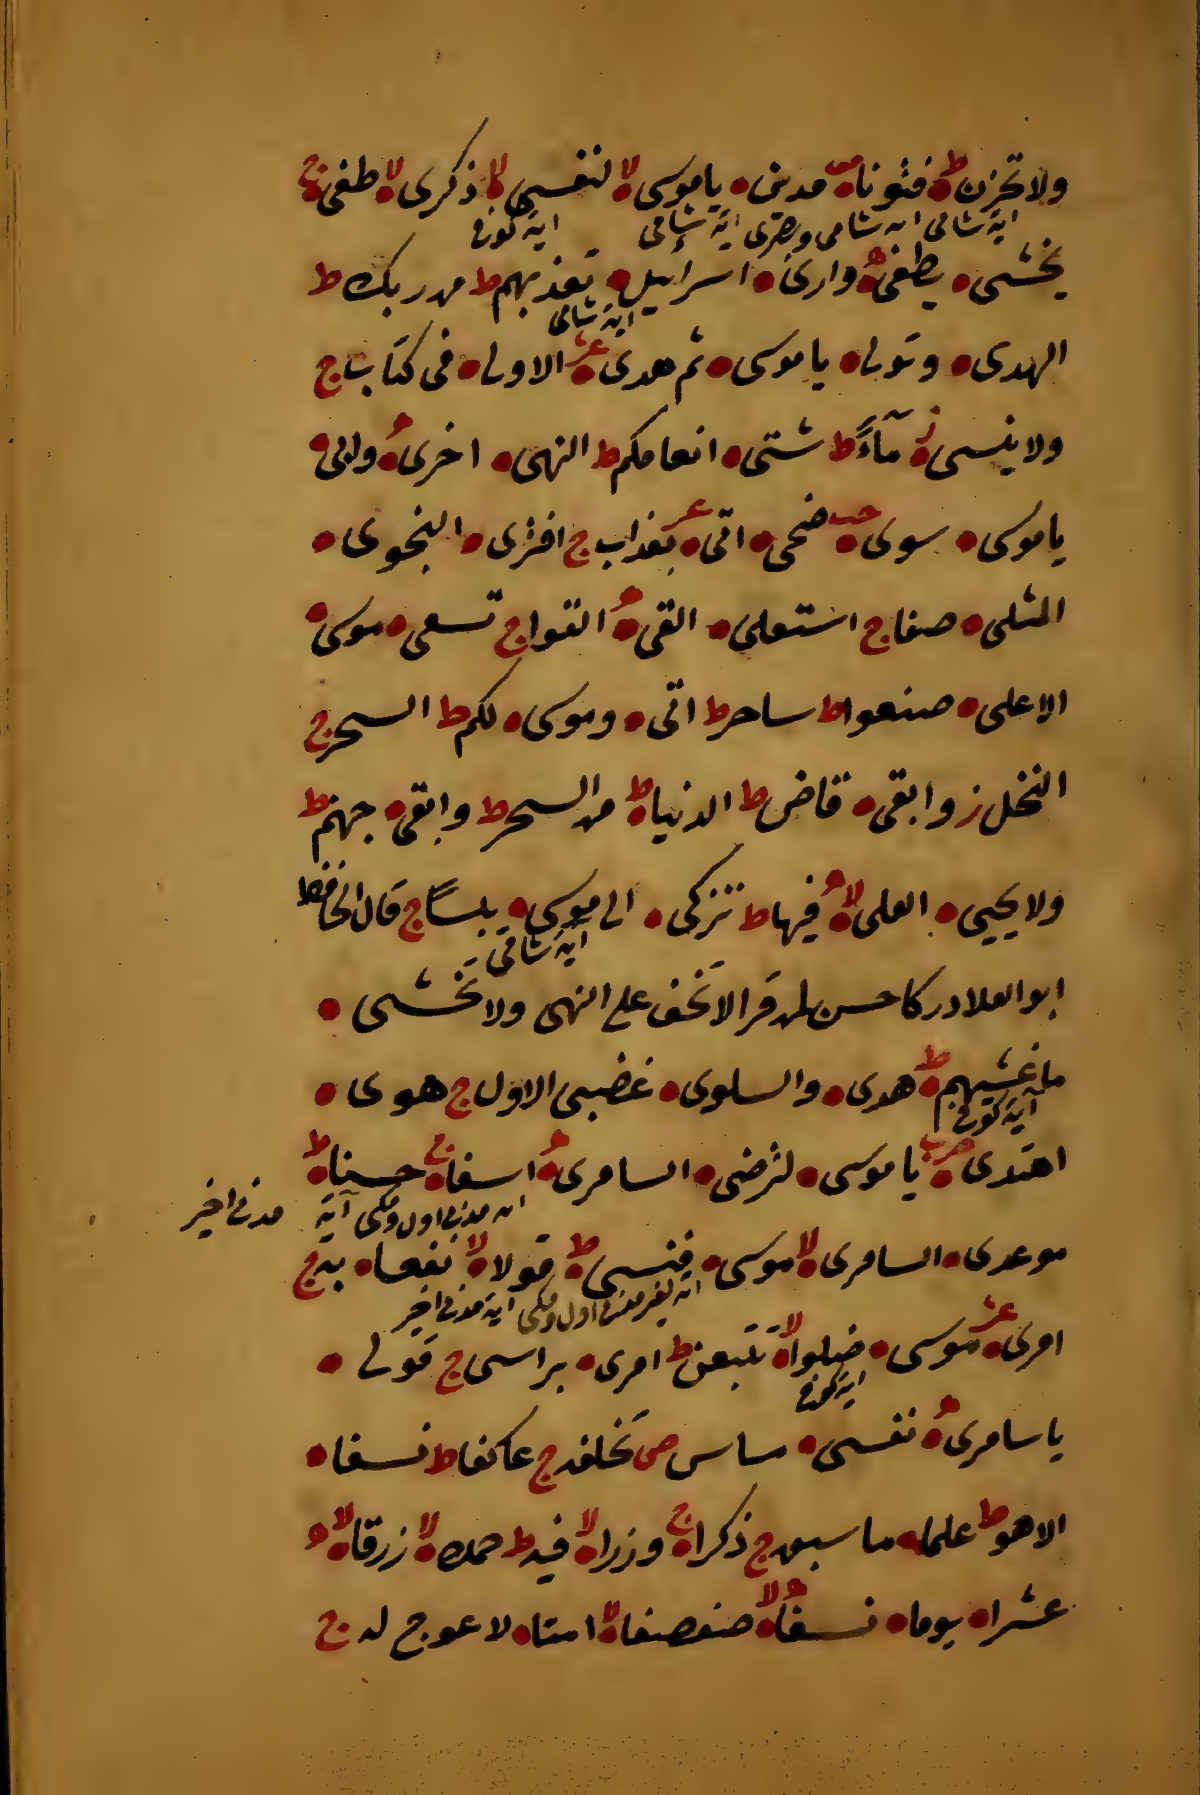 ولا تحزن ط فتونا مدين ياموسى لا لنفسى لا ذكرى لا طغى ج
اية شامى اية شامى وبصرى اية شامى اية كوفى
يخشى يطغى وارى اسرائيل تعذبهم ط من ربك ط
اية شامى
الهدى وتولى ياموسى ثم هدى عشر الاولى فى كتاب ج
ولا ينسى ز مآءً ط شتى انعامكم ط النهى اخرى وابى
ياموسى سوى ضحى اتى بعذاب ج افترى النجوى
المثلى صفا ج استعلى القى القوا ج تسعى موسى
الاعلى صنعوا ط ساحر ط اتى وموسى لكم ط السحر ج
النخل ز وابقى قاض ط الدنيا ط من السحر ط وابقى جهنم ط
ولا يحيى العلى لا فيها ط تزكى الى موسى يبسًا ج قال الحافظ
اية شامى
ابو العلا دركا حسن لمن قرا لا تخف على النهى ولا تخشى
ما غشيهم ط هدى والسلوى غضبى الاول ج هوى
اية كوفى
اهتدى ياموسى لترضى السامرى اسفا ج حسنا ط
اية مدنى اول ومكى آية مدنى اخير
موعدى السامرى لا موسى فنسى ط قولا لا نفعا به ج
اية لغير مدنى اول ومكى اية مدنى اخير
امرى عشر موسى ضلوا لا تتبعن ط امرى براسى ج قولى
اية كوفى
ياسامرى نفسى مساس ص تخلفه ج عاكفا ط نسفا
الا هو ط علما ما سبق ج ذكرا ج وزرا لا فيه ط حملا لا زرقا لا
عشرا يوما نسفا لا صفصفا لا امتا لا عوج له ج